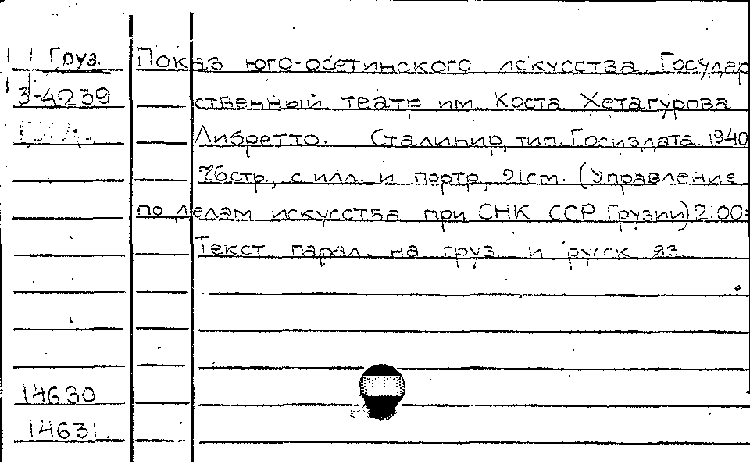 Груз. Показ юго-осетинского искусства Государ
3-4239 ственный театр им. Коста Хетагурова
Либретто. Сталинир, тип. Госиздата 1940
76стр, с илл. и портр, 21см. (Управление
по делам искусства при СНК ССР Грузии) 2:00
Текст парал. на груз и русск яз.
14630
14631